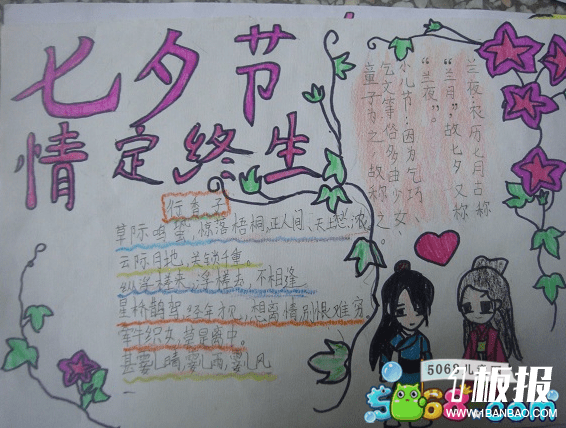 七夕节
情定终生
兰夜:农历七月古称
“兰月”,故七夕又称
“兰夜”。
小儿节:因为乞巧、
乞文等俗多由少女、
童子为之,故称之。
行香子
草际鸣蛩,惊落梧桐,正人间、天上愁浓。
云阶月地,关锁千重。
纵浮槎来,浮槎去,不相逢。
星桥鹊驾,经年才见,想离情、别恨难穷。
牵牛织女,莫是离中。
甚霎儿晴,霎儿雨,霎儿风
5068儿
板报
5068.com
WWW.1BANBAO.COM